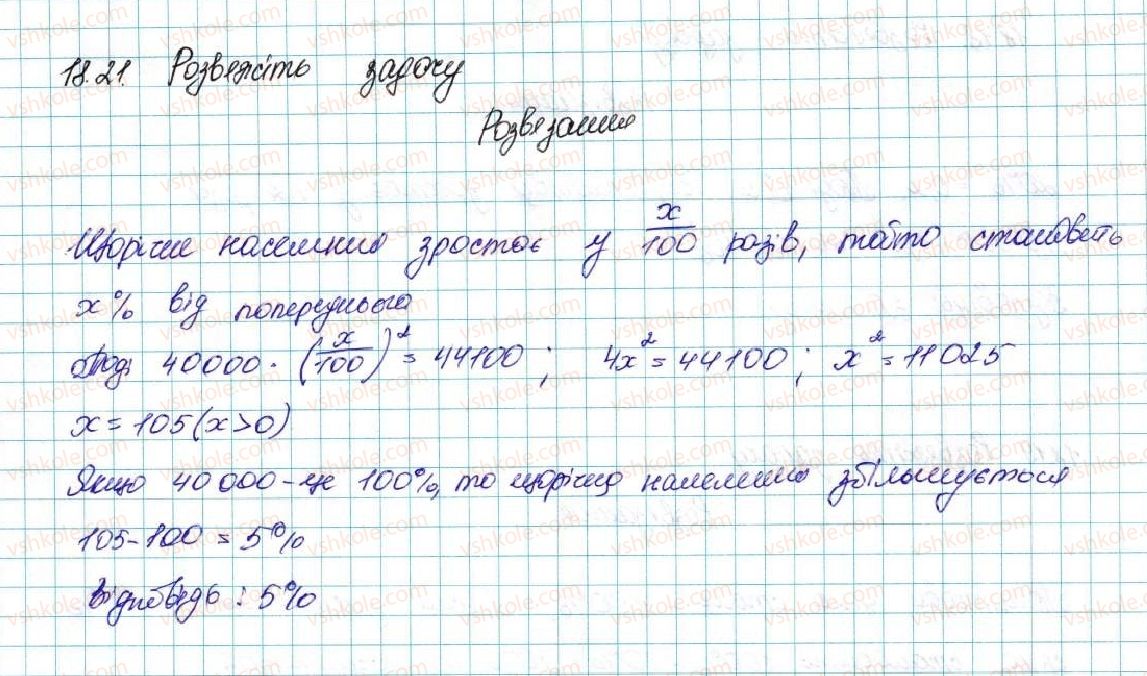 18.21. Розвяжіть задачу
Розвязання
Щорічне населення зростає у x/100 разів, тобто становить
x% від попереднього
Тоді 40000 · (x/100)² = 44100; 4x² = 44100; x² = 11025
x = 105 (x>0)
Якщо 40 000 - це 100%, то щорічно населення збільшується
105-100 = 5%
Відповідь: 5%